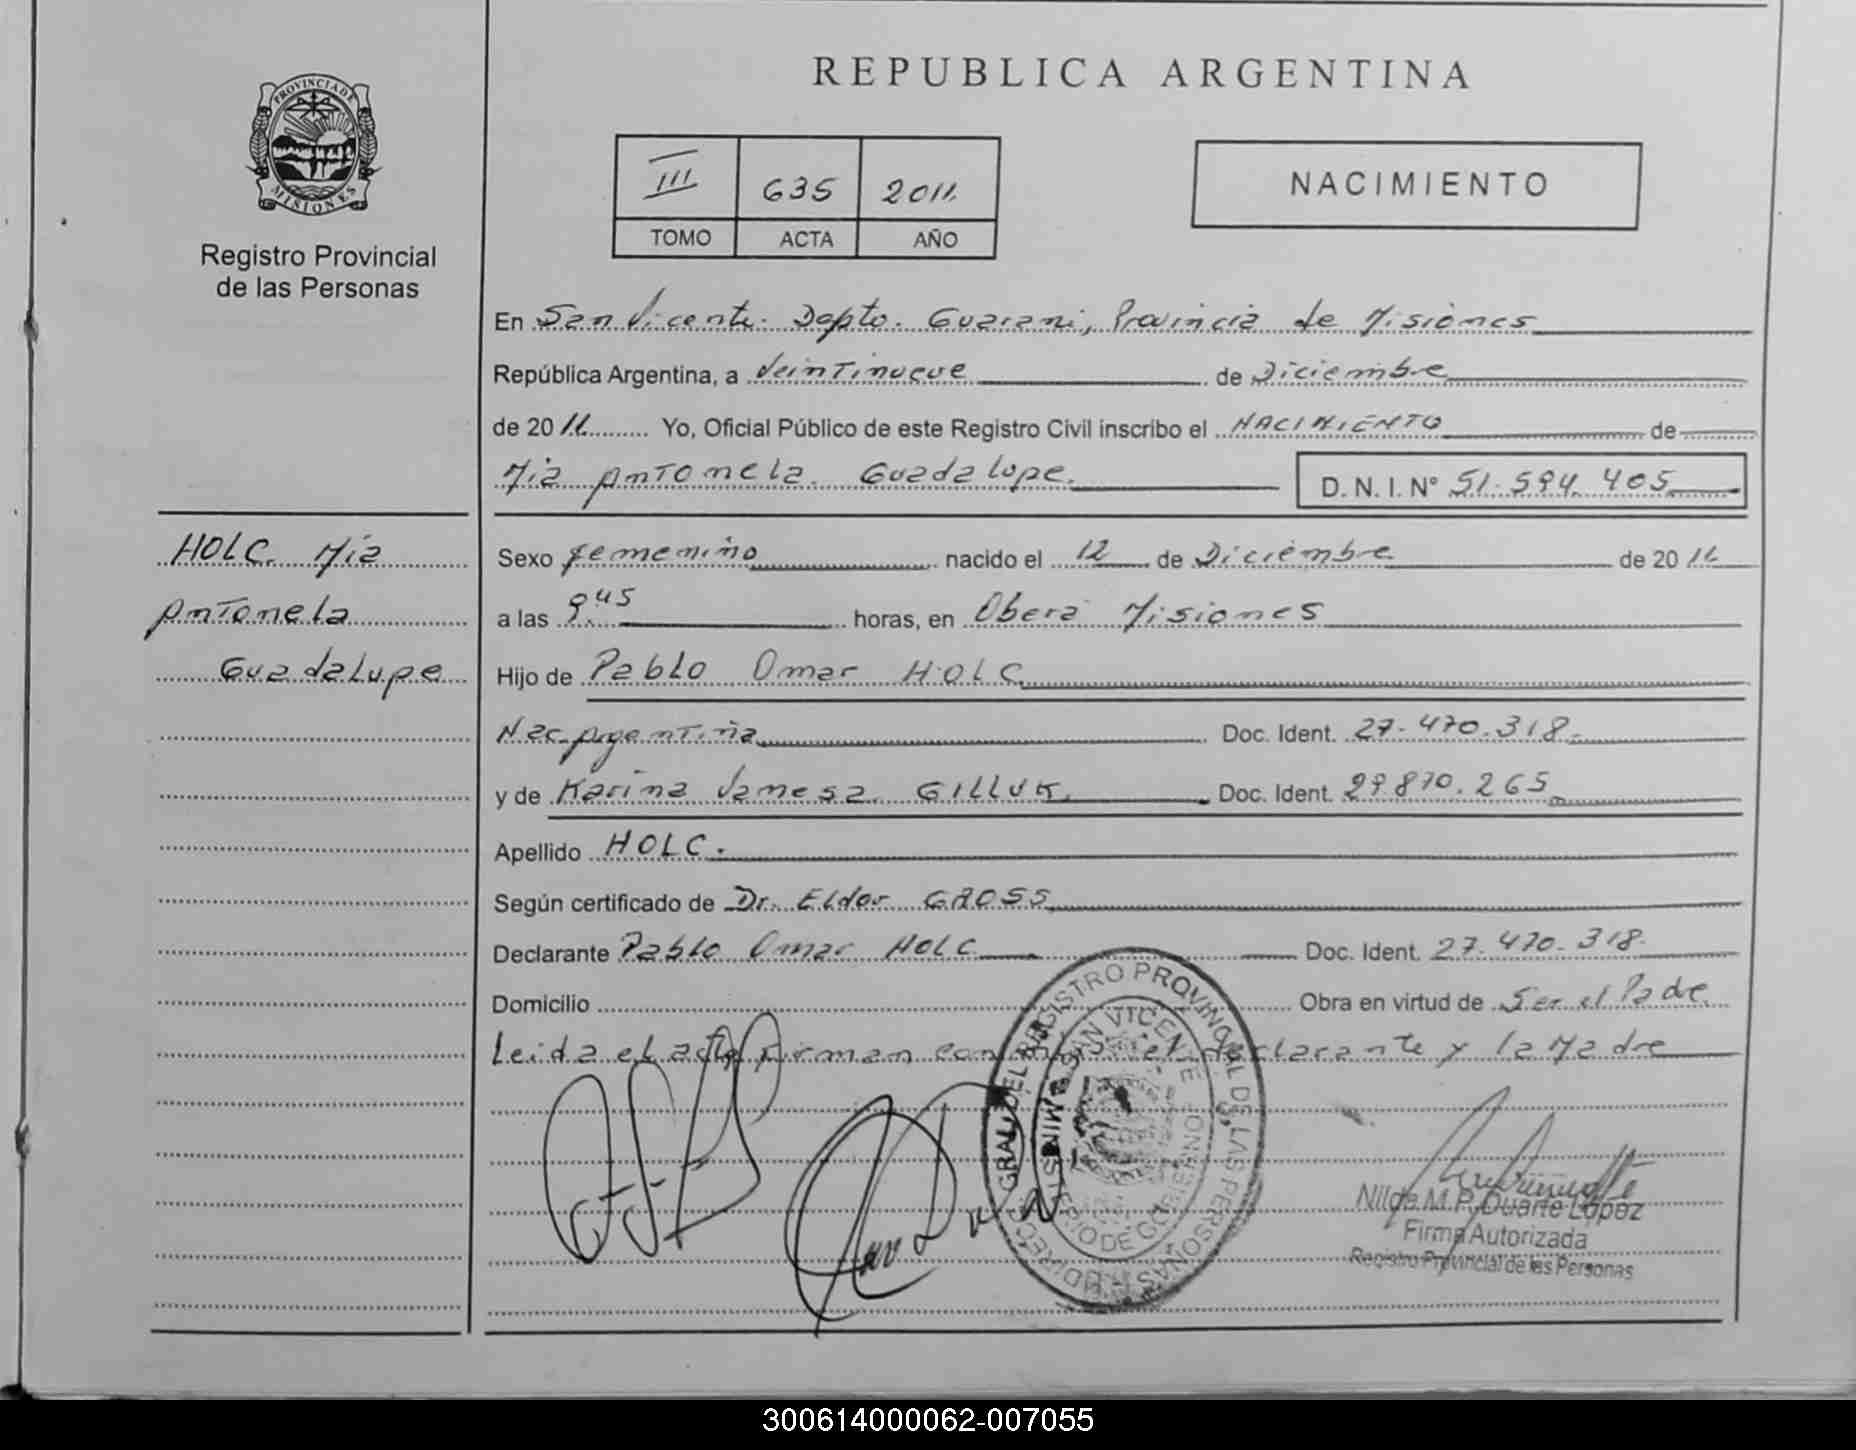 REPUBLICA ARGENTINA
PROVINCIA DE MISIONES
Registro Provincial
de las Personas
III 635 2011
TOMO ACTA AÑO
NACIMIENTO
En San Vicente. Depto. Guarani, Provincia de Misiones
República Argentina, a Veintinueve de Diciembre
de 2011 Yo, Oficial Público de este Registro Civil inscribo el NACIMIENTO de
Mia Antonela Guadalupe. D. N. I. N° 51.594.405
HOLC. Mia
Antonela
Guadalupe
Sexo femenino nacido el 12 de Diciembre de 2011
a las 9.45 horas, en Oberá Misiones
Hijo de Pablo Omar HOLC
Nac. Argentina Doc. Ident. 27.470.318.
y de Karina Vanesa GILLUK. Doc. Ident. 29.870.265
Apellido HOLC.
Según certificado de Dr. Elder GROSS
Declarante Pablo Omar HOLC Doc. Ident. 27.470.318.
Domicilio Obra en virtud de Ser el Padre
Leida el acta firman declarante y la Madre
REGISTRO PROVINCIAL DE LAS PERSONAS
SAN VICENTE
MINISTERIO DE GOBIERNO
Nilda M.P. Duarte Lopez
Firma Autorizada
Registro Provincial de las Personas
300614000062-007055